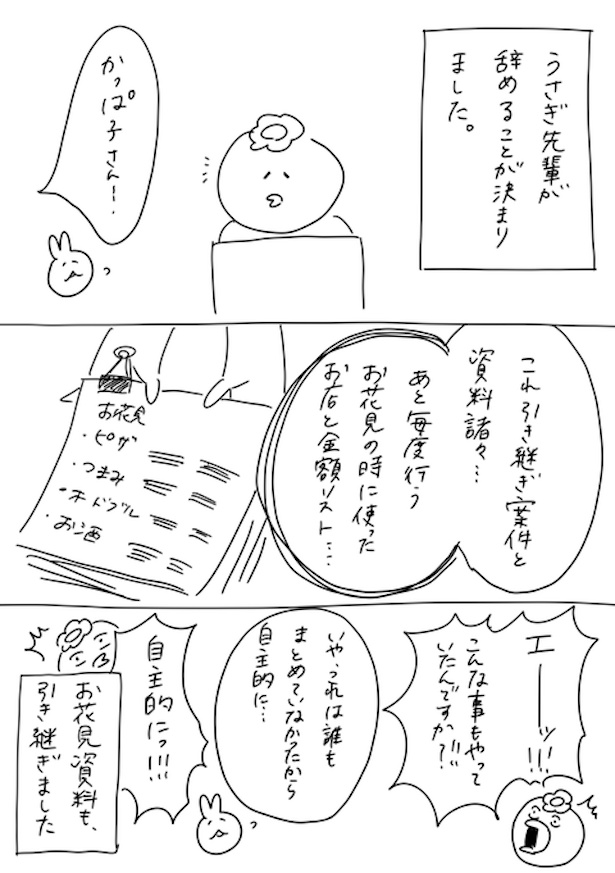 うさぎ先輩が
辞めることが決まり
ました。
かっぱ子さんー.
これ引き継ぎ案件と
資料諸々…
あと毎度行う
お花見の時に使った
お店と金額リスト…
お花見
・ピザ
・つまみ
・オードブル
・お酒
エーーッ!!!
こんな事もやって
いたんですか?!!
いやこれは誰も
まとめていなかったから
自主的に…
自主的にっ!!!
お花見資料も、
引き継ぎました